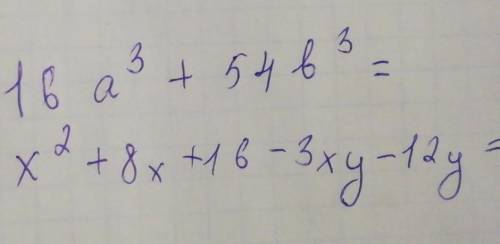 16 a³ + 54 b³ =
x² + 8x + 16 - 3xy - 12y =